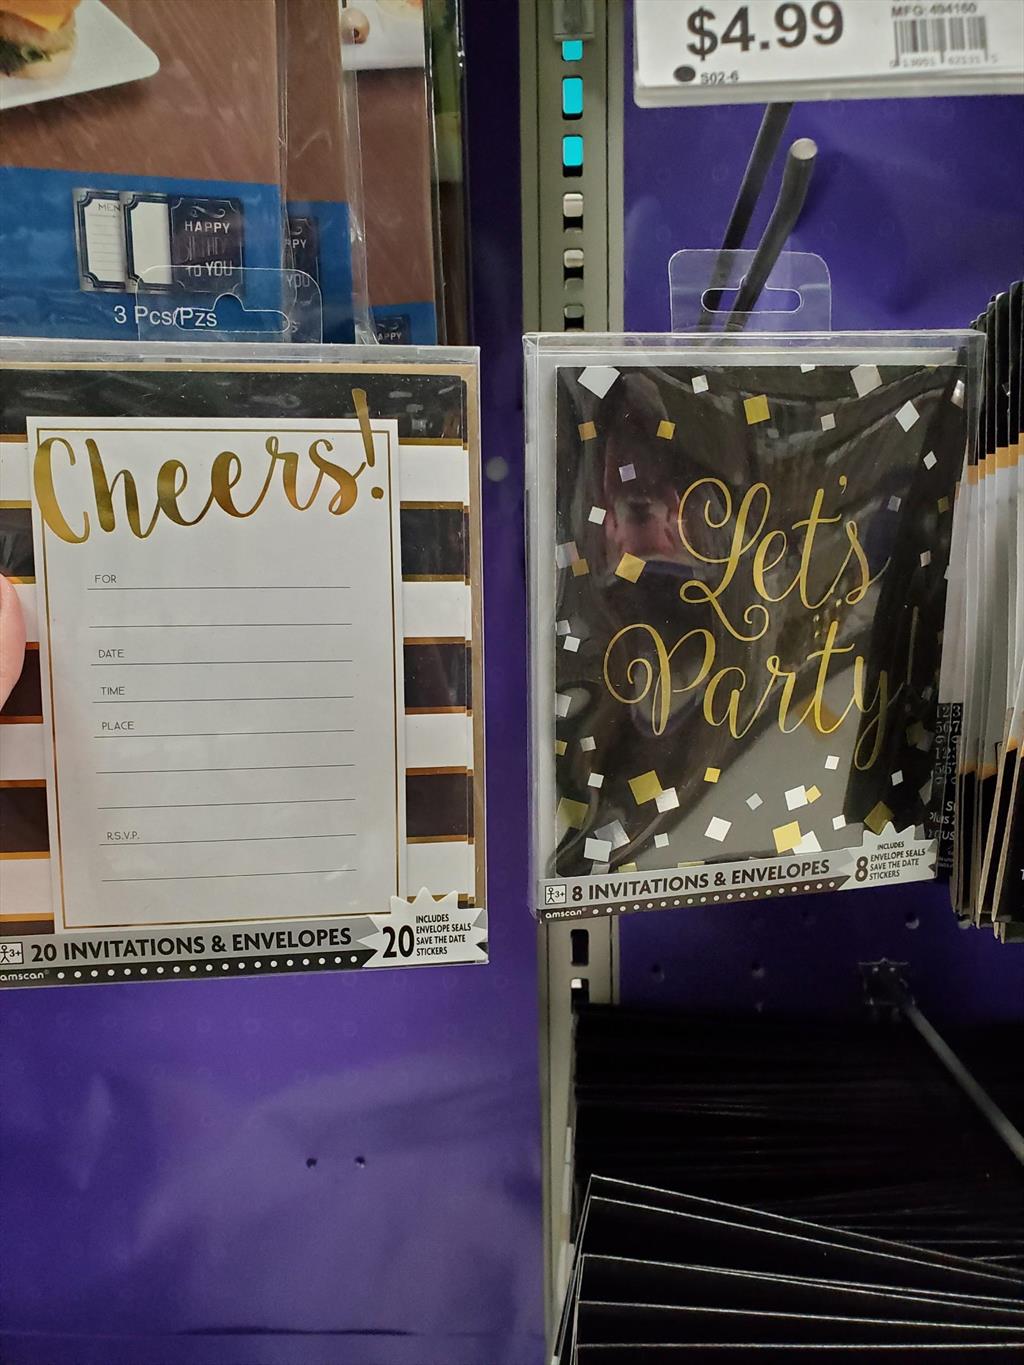 $4.99
MFG:494160
S02-6
MEN
HAPPY
TO YOU
3 Pcs/Pzs
Cheers!
FOR
DATE
TIME
PLACE
R.S.V.P.
3+ 20 INVITATIONS & ENVELOPES
20
INCLUDES
ENVELOPE SEALS
SAVE THE DATE
STICKERS
amscan
Let's
Party
3+ 8 INVITATIONS & ENVELOPES
8
INCLUDES
ENVELOPE SEALS
SAVE THE DATE
STICKERS
amscan